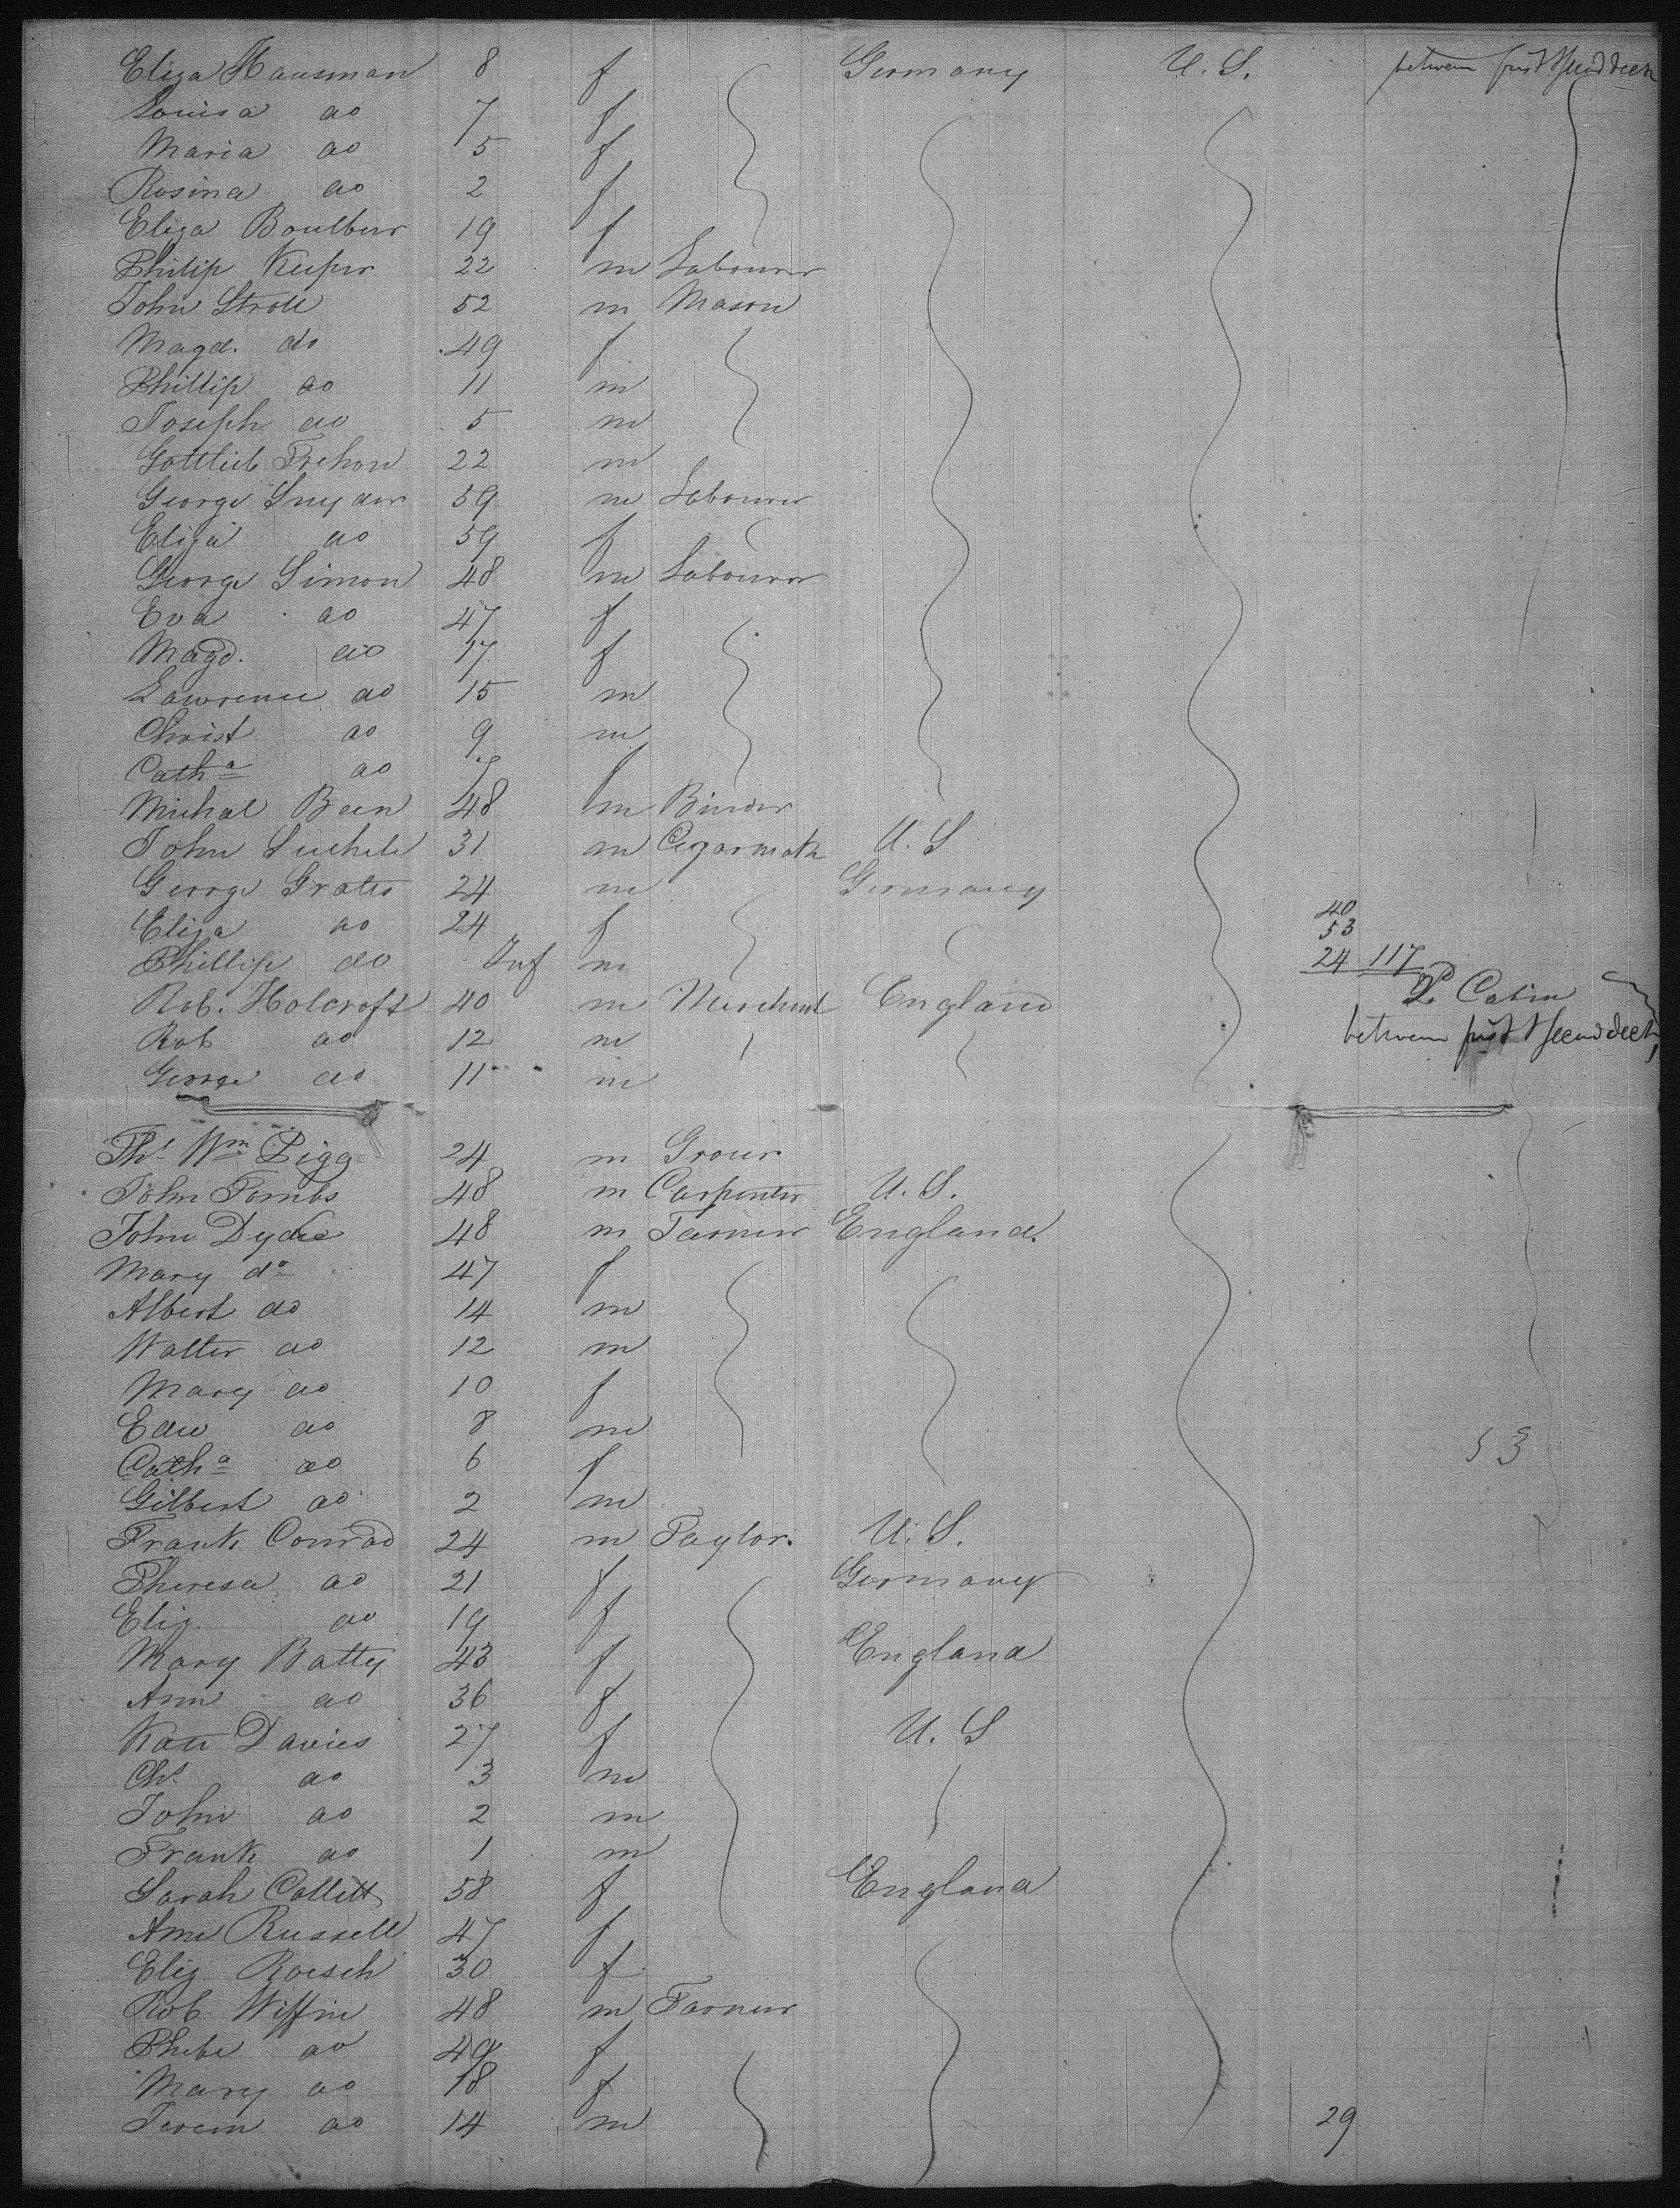 Eliza Hausman 8 f Germany U.S. between first & second deck
Louisa do 7 f
Maria do 5 f
Rosina do 2 f
Eliza Boulbur 19 f
Philip Keiper 22 m Labourer
John Stroll 52 m Mason
Magd. do 49 f
Phillip do 11 m
Joseph do 5 m
Gottlieb 22 m
George Snyder 59 m Labourer
Eliza do 59 f
George Simon 48 m Labourer
Eva do 47 f
Magd. do 17 f
Lawrence do 15 m
Christ do 9 m
Catha do 7 f
Michal Been 48 m Binder
John 31 m Cegarmak U.S
George Grates 24 m Germany
Eliza do 24 f
40
53
Phillip do Inf m
24 117
Rob. Holcroft 40 m Merchant England
2d Cabin
Rob do 12 m
between first & second deck
George do 11 m
Ths Wm Pigg 24 m Grocer
John Tombs 48 m Carpenter U.S.
John Dyche 48 m Farmer England.
Mary do 47 f
Albert do 14 m
Walter do 12 m
Mary do 10 f
Edw do 8 m
53
Catha do 6 f
Gilbert do 2 m
Frank Conrad 24 m Taylor. U.S.
Theresa do 21 f Germany
Eliz. do 19 f
Mary Batty 43 f England
Ann do 36 f
Kate Davies 27 f U.S
Chs do 3 m
John do 2 m
Frank do 1 m
Sarah Collett 58 f England
Ann Russell 47 f
Eliz Roesch 30 f
Rob. Wiffin 48 m Farmer
Phebe do 49 f
Mary do 18 f
do 14 m
29